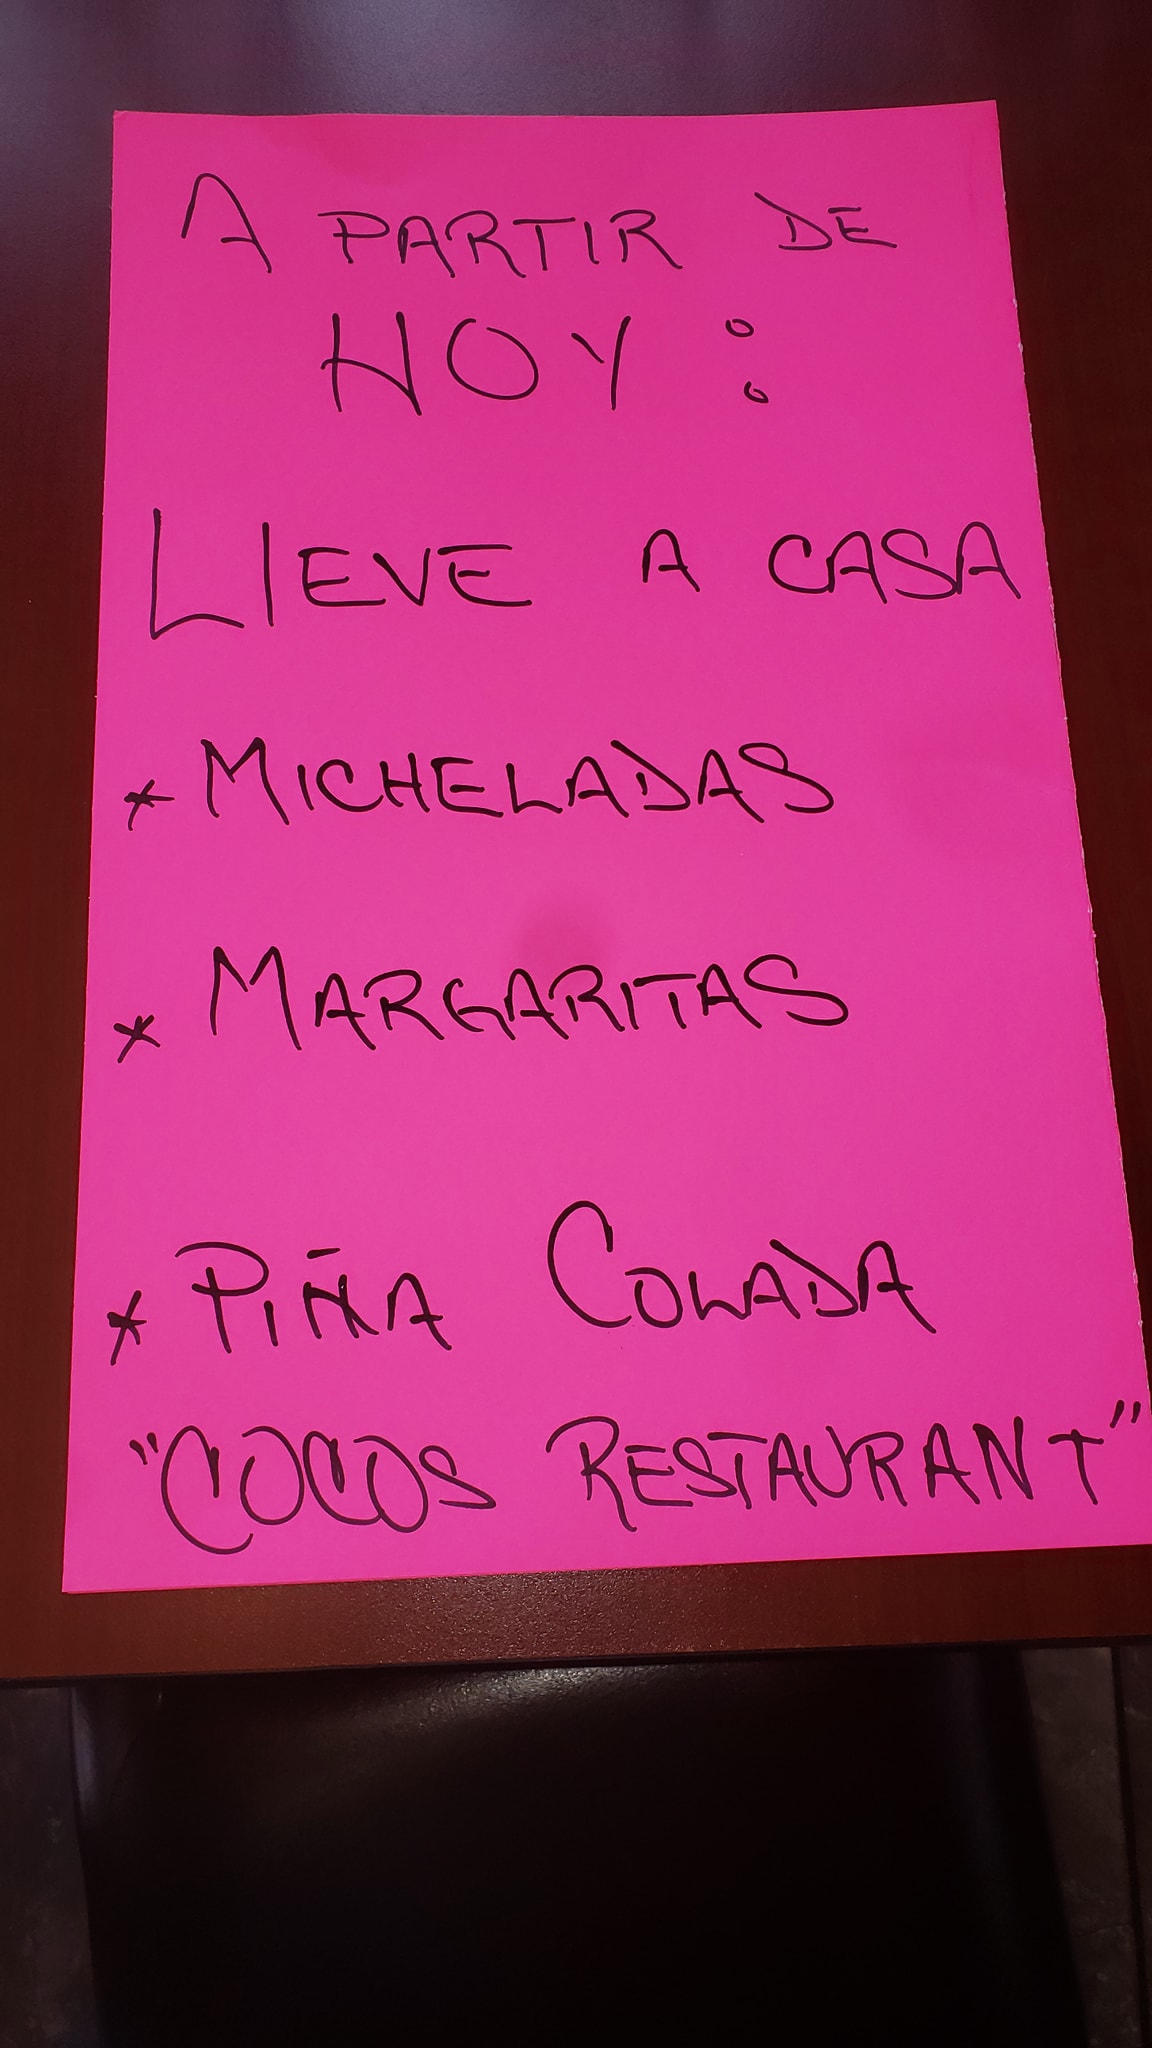 A PARTIR DE
HOY :
LIEVE A CASA
* MICHELADAS
* MARGARITAS
* PIÑA COLADA
"COCOS RESTAURANT"